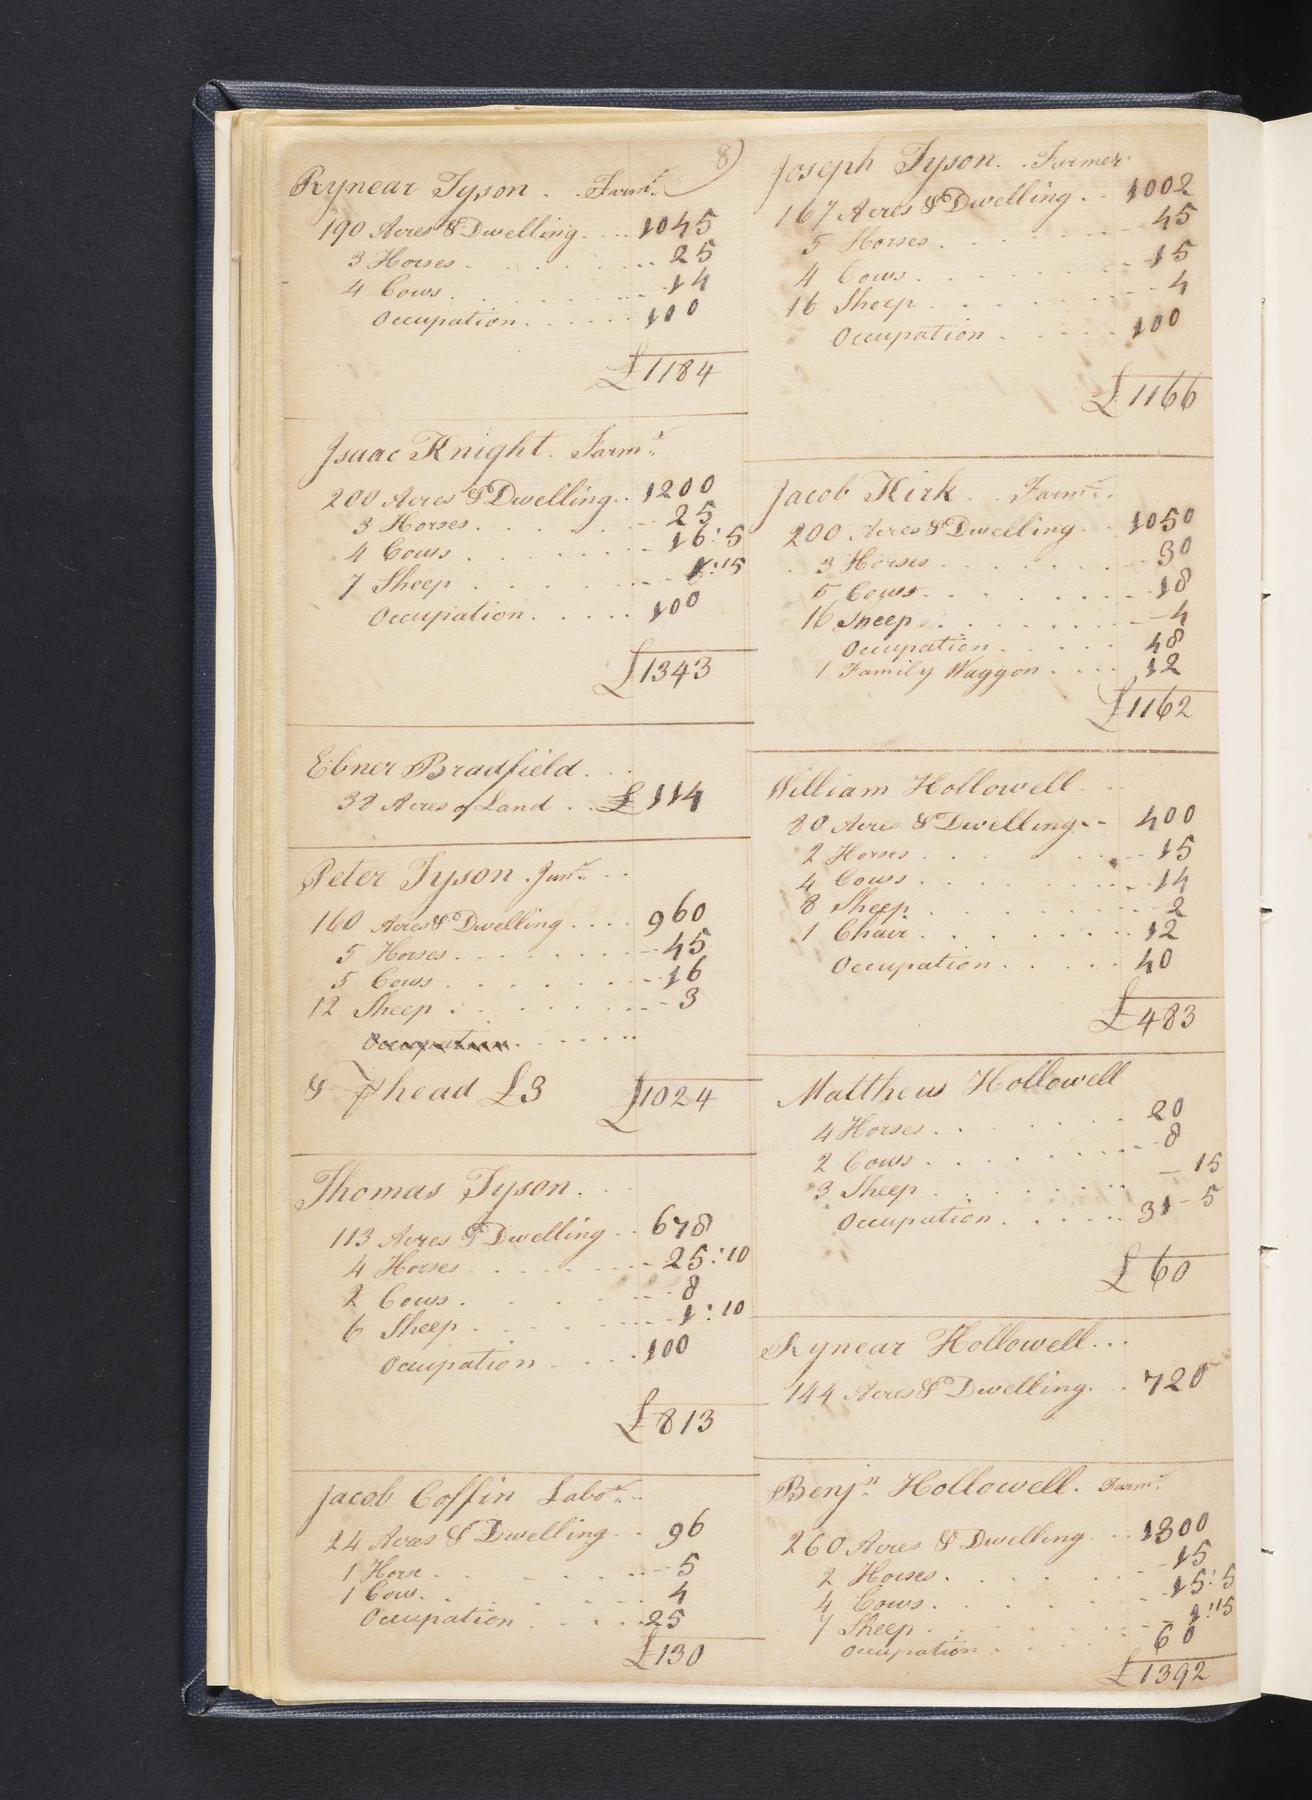 8)
Rynear Tyson . . Farmr.
190 Acres & Dwelling . . . 1045
3 Horses . . . 25
4 Cows . . . 14
Occupation . . . 100
£1184
Isaac Knight . Farmr.
200 Acres & Dwelling . . 1200
3 Horses . . . 25
4 Cows . . . 16:5
7 Sheep . . . 1:15
Occupation . . . 100
£1343
Ebner Bradfield . . .
38 Acres of Land . . £114
Peter Tyson . Junr. . .
160 Acres & Dwelling . . . 960
5 Horses . . . 45
5 Cows . . . 16
12 Sheep . . . 3
Occupation . . .
& head £3 £1024
Thomas Tyson . . .
113 Acres & Dwelling . . 678
4 Horses . . . 25:10
2 Cows . . . 8
6 Sheep . . . 1:10
Occupation . . . 100
£813
Jacob Coffin Labor. . .
24 Acres & Dwelling . . 96
1 Horse . . . 5
1 Cow . . . 4
Occupation . . . 25
£130
Joseph Tyson . . Farmer
167 Acres & Dwelling . . 1002
5 Horses . . . 45
4 Cows . . . 15
16 Sheep . . . 4
Occupation . . . 100
£1166
Jacob Kirk . . Farmr.
200 Acres & Dwelling . . 1050
3 Horses . . . 30
5 Cows . . . 18
16 Sheep . . . 4
Occupation . . . 48
1 Family Waggon . . . 12
£1162
William Hollowell . . .
80 Acres & Dwelling . . 400
2 Horses . . . 15
4 Cows . . . 14
8 Sheep . . . 2
1 Chair . . . 12
Occupation . . . 40
£483
Matthew Hollowell
4 Horses . . . 20
2 Cows . . . 8
3 Sheep . . . – 15
Occupation . . . 31 - 5
£60
Rynear Hollowell . . .
144 Acres & Dwelling . . 720
Benjn. Hollowell . Farmr.
260 Acres & Dwelling . . 1300
2 Horses . . . 15
4 Cows . . . 15:5
7 Sheep . . . 1:15
Occupation . . . 60
£1392